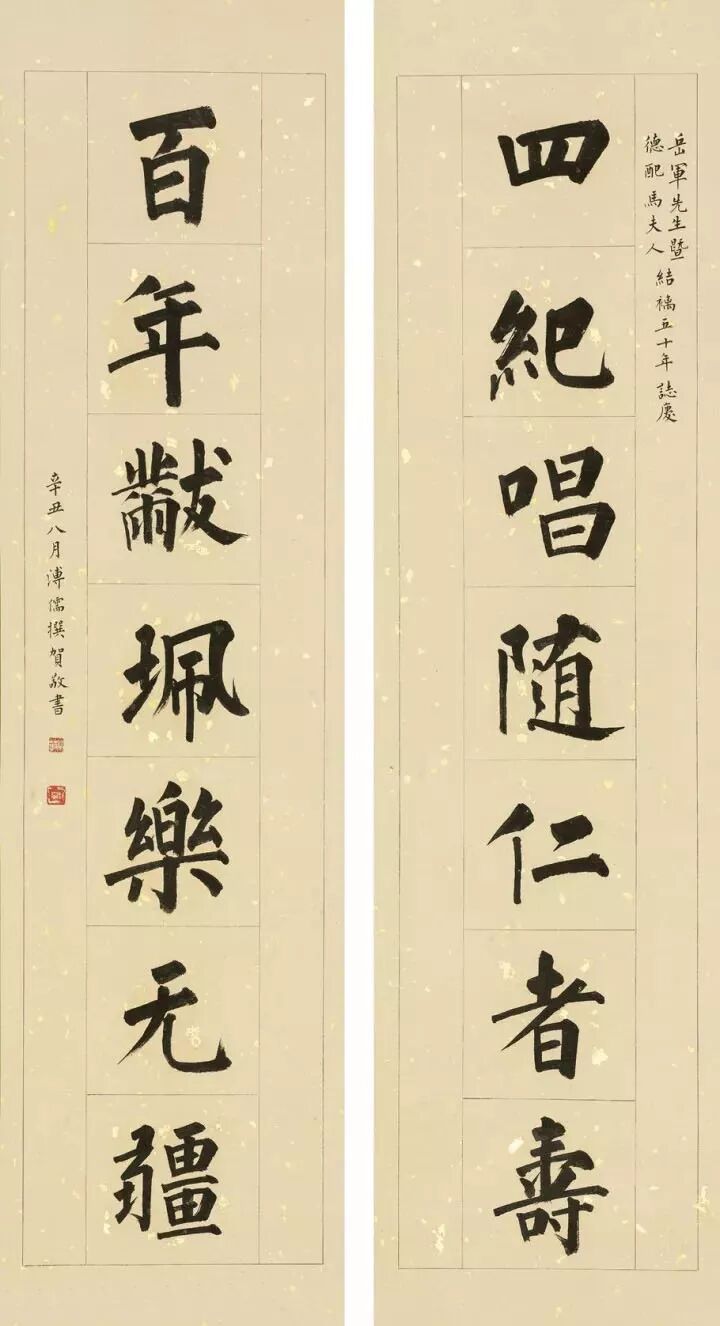 岳軍先生暨
德配馬夫人
結褵五十年誌慶
四紀唱随仁者壽
百年黻珮樂无疆
辛丑八月溥儒撰賀敬書